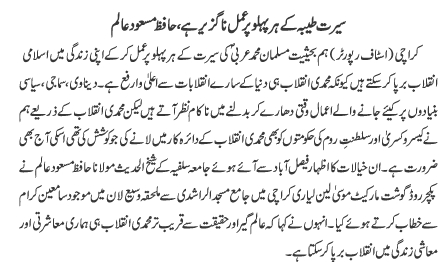 سیرت طیبہ کے ہر پہلو پر عمل ناگزیر ہے، حافظ مسعود عالم
کراچی (اسٹاف رپورٹر) ہم بحیثیت مسلمان محمد عربیؐ کی سیرت کے ہر پہلو پر عمل کر کے اپنی زندگی میں اسلامی
انقلاب برپا کر سکتے ہیں کیونکہ محمدی انقلاب ہی دنیا کے سارے انقلابات سے اعلیٰ وارفع ہے۔ دیناوی، سماجی، سیاسی
بنیادوں پر کیئے جانے والے اعمال وقتی دھارے کر بدلنے میں نا کام نظر آتے ہیں لیکن محمدی انقلاب کے ذریعہ ہم
نے کیسر و کسریٰ اور سلطنت روم کی حکومتوں کو بھی محمدی انقلاب کے دائرہ کار میں لانے کی جو کوشش کی تھی اسکی آج بھی
ضرورت ہے۔ ان خیالات کا اظہار فیصل آباد سے آئے ہوئے جامعہ سلفیہ کے شیخ الحدیث مولانا حافظ مسعود عالم نے
پکچر روڈ گوشت مارکیٹ موسیٰ لین لیاری کراچی میں جامع مسجد الراشدی سے ملحقہ وسیع لان میں موجود سامعین کرام
سے خطاب کرتے ہوئے کیا۔ انہوں نے کہا کہ عالم گیر اور حقیقت سے قریب تر محمدی انقلاب ہی ہماری معاشرتی اور
معاشی زندگی میں انقلاب برپا کر سکتا ہے۔